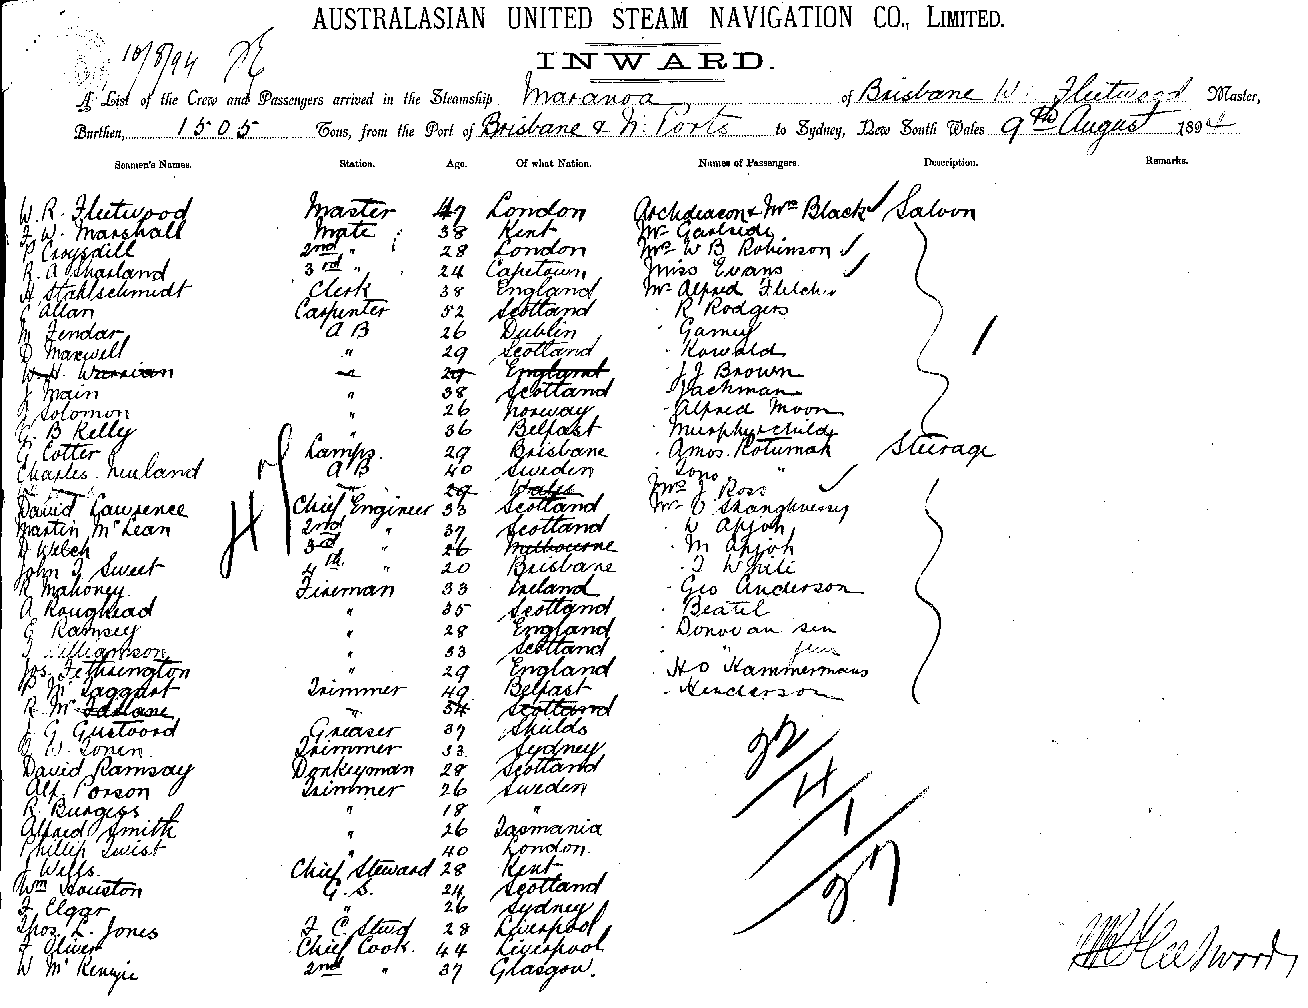 AUSTRALASIAN UNITED STEAM NAVIGATION CO., LIMITED.
10/8/94
INWARD.
A List of the Crew and Passengers arrived in the Steamship Maranoa of Brisbane W. Fleetwood Master,
Burthen, 1505 Tons, from the Port of Brisbane & N. Ports to Sydney, New South Wales 9th August 1894
Seamen's Names. Station. Age. Of what Nation. Names of Passengers. Description. Remarks.
W. R. Fleetwood Master 47 London Archdeacon & Mrs Black Saloon
F W. Marshall Mate 38 Kent Mr Garlside
P Croysdill 2nd " 28 London Mrs W B Robinson
R. A Sharland 3rd " 24 Capetown Miss Evans
H Stahlschmidt Clerk 38 England Mr Alfred Fletcher
Allan Carpenter 52 Scotland " R Rodgers
Fendar A B 26 Dublin
D Maxwell " 29 Scotland " Kowald
W. H. " 29 England " J J Brown
J Main " 38 Scotland " Jackman
Solomon " 26 Norway " Alfred Moon
B Kelly " 36 Belfast Murphy & child
G Cotter Lamps. 29 Brisbane " Amos Rotumah Steerage
Charles Neuland A B 40 Sweden "
29 Wales Mrs J Ross
David Lawrence Chief Engineer 33 Scotland Mr O Shanghnessy
Martin McLean 2nd " 37 Scotland " W Apjoh
Welch 3rd " 26 Melbourne " M Apjoh
John T Sweet 4th " 20 Brisbane " T White
R Mahoney Fireman 33 Ireland " Geo Anderson
A Roughead " 35 Scotland " Beatel
G Ramsey " 28 England " Donovan sen
Williamson " 33 Scotland " " jun
Jos. Fetherington " 29 England " H O Hammermans
P McTaggart Trimmer 49 Belfast " Henderson
R. McFarlane " 34 Scotland
J G Gustword Greaser 37 Shields
W. Trimmer 33 Sydney
David Ramsay Donkeyman 28 Scotland
Alf. Porson Trimmer 26 Sweden
R. Burgess " 18 "
Alfred Smith " 26 Tasmania
Phillip Twist " 40 London
J Wells Chief Steward 28 Kent
Wm Houston G. S. 24 Scotland
F Elgar " 26 Sydney
Thos. L. Jones F. C. Stwd 28 Liverpool
F Oliver Chief Cook. 44 Liverpool
W McKenzie 2nd " 37 Glasgow.
47
22
4
1
27
W R Fleetwood